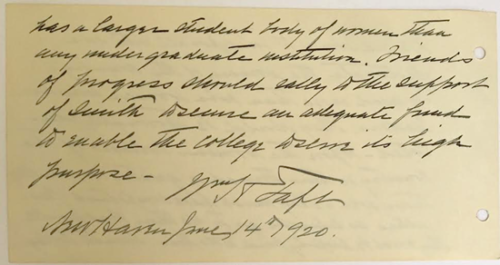 has a larger student body of women than
any undergraduate institution. Friends
of progress should rally to the support
of Smith to secure an adequate fund
to enable the College to serve its high
purpose -
Wm H Taft
New Haven June 14th 1920.